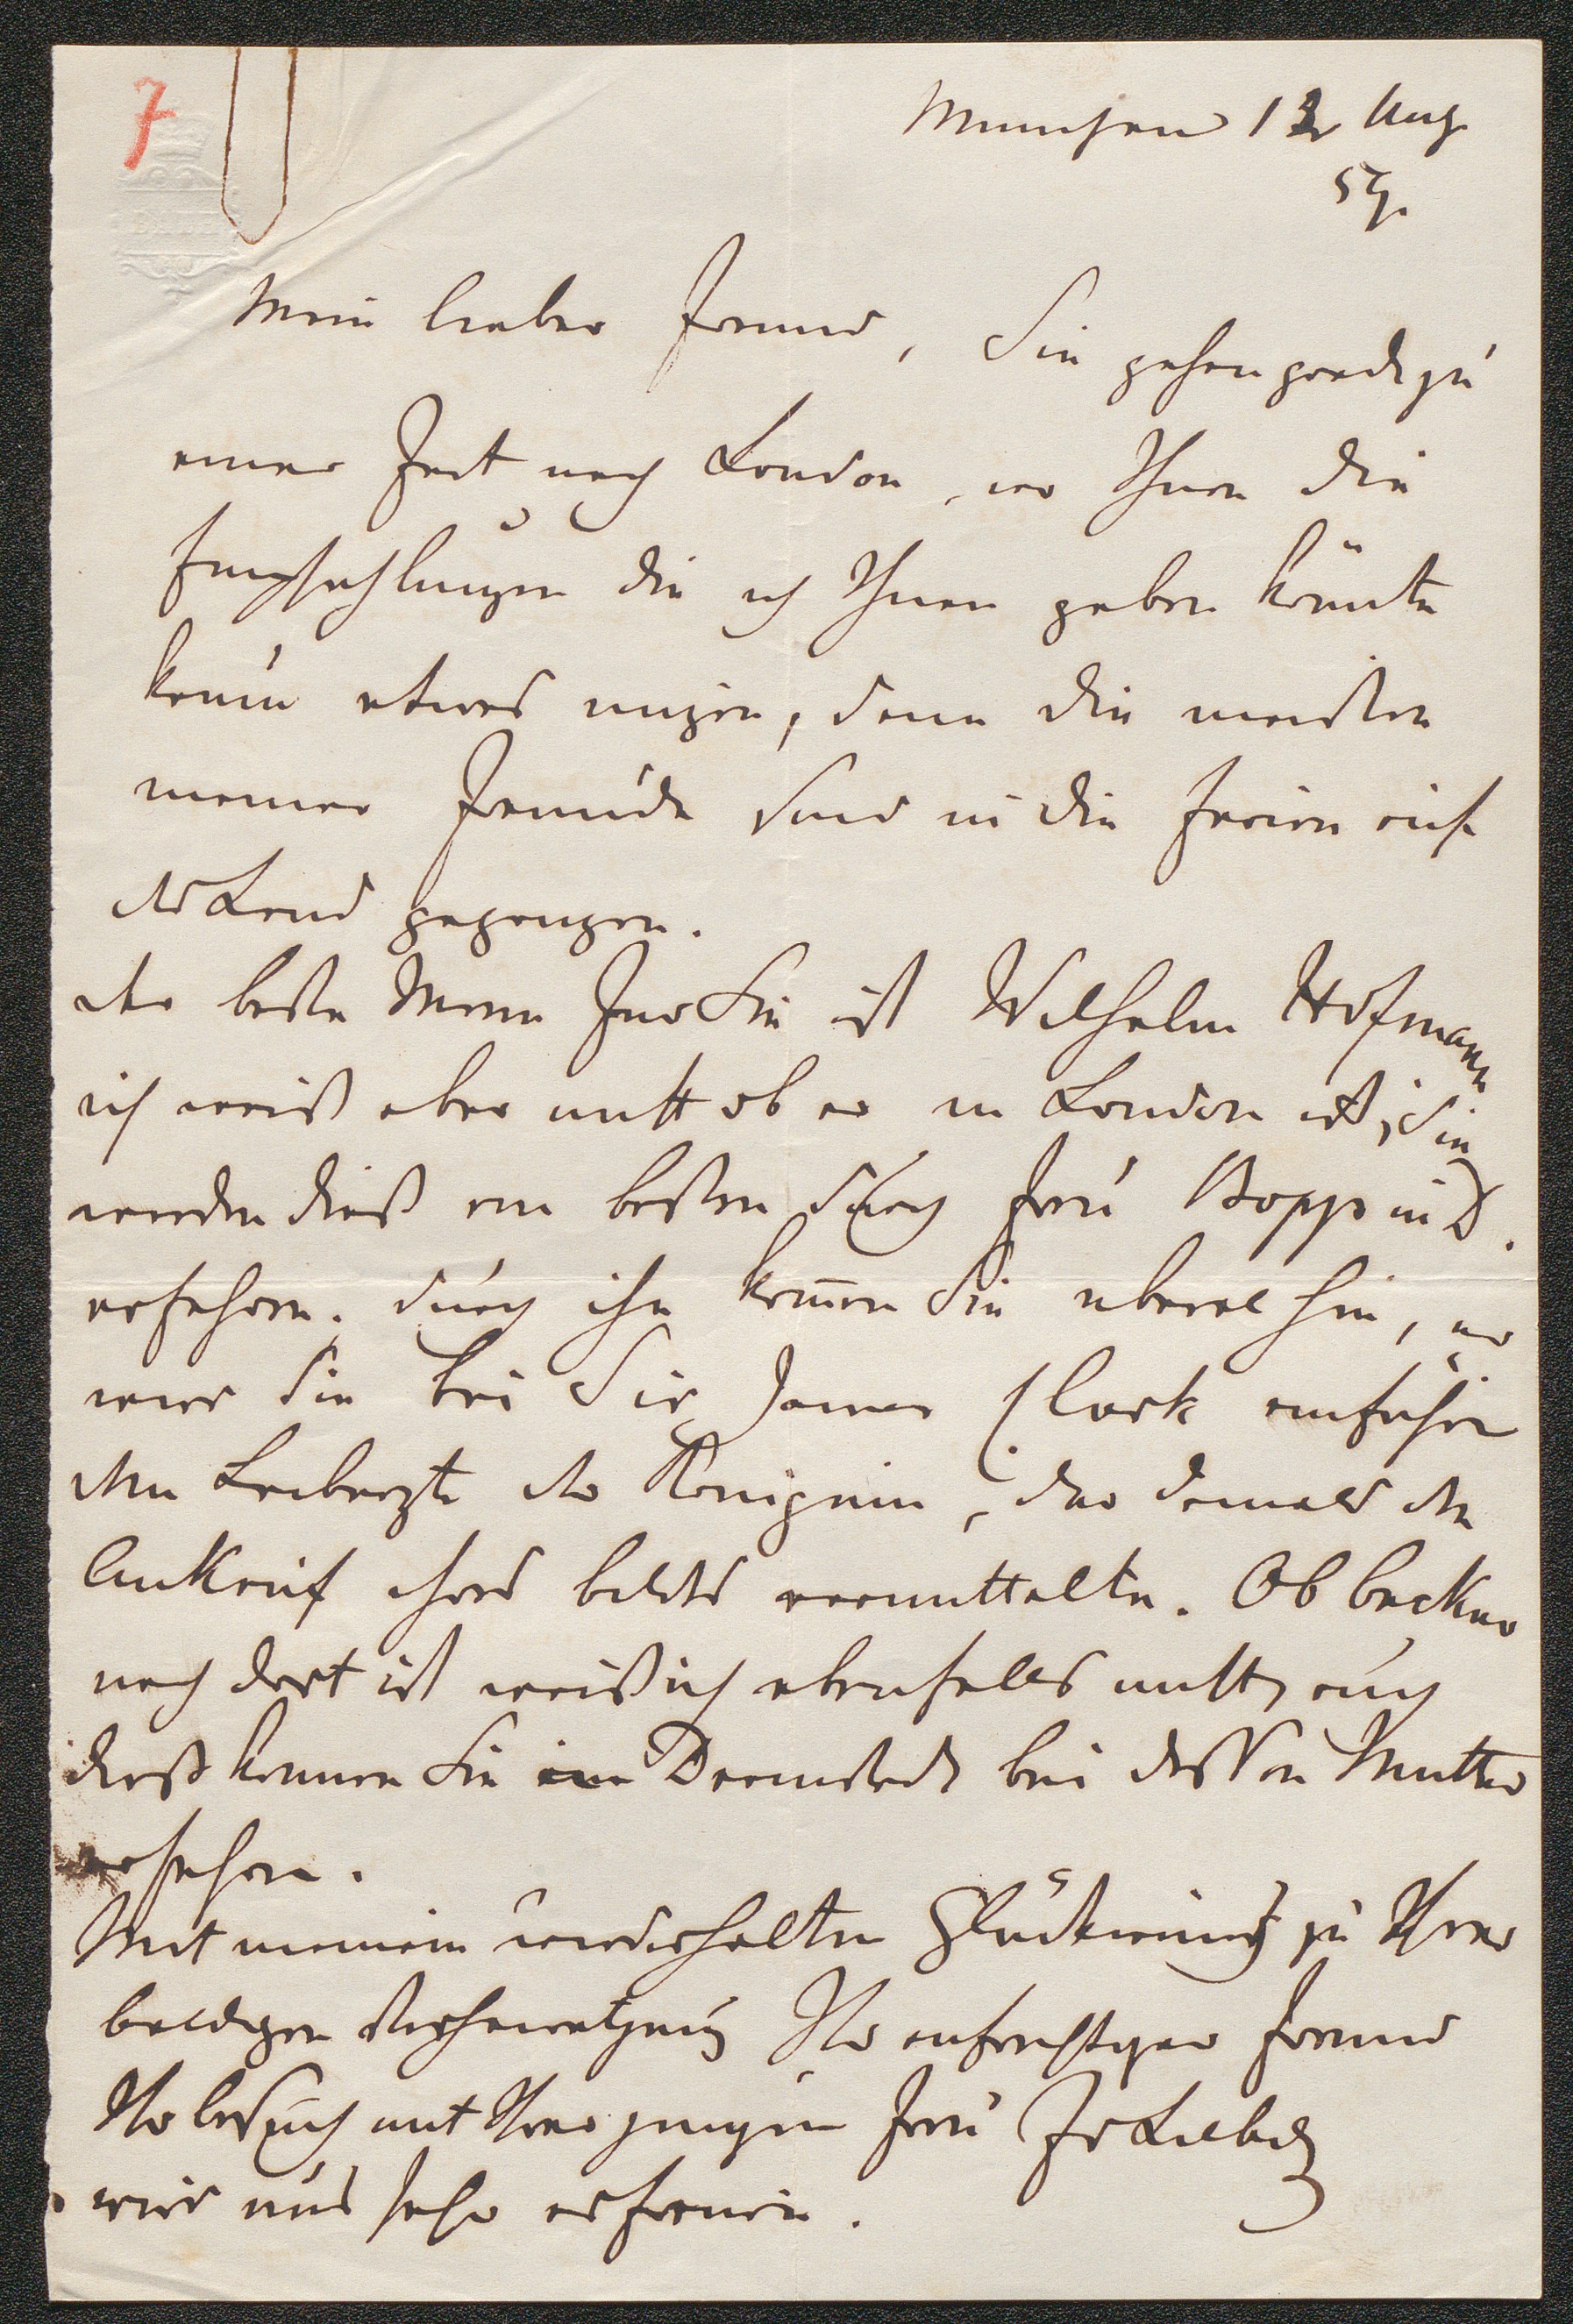 7
München 12 Aug
57.
Mein lieber Freund, Sie gehen grade zu
einer Zeit nach London, wo Ihnen die
Empfehlungen die ich Ihnen geben könnte
kaum etwas nuzen, denn die meisten
meiner Freunde sind in die Ferien auf
das Land gegangen.
Der beste Mann für Sie ist Wilhelm Hofmann
ich weiß aber nicht ob er in London ist, Sie
werden dieß am besten durch Frau Bopp in D.
erfahren. durch ihn kommen Sie überall hin, er
wird Sie bei Sir James Clark einführen
dem Leibarzte der Königinn, der damals den
Ankauf ihres bildes vermittelte. Ob becker
noch dort ist weiß ich ebenfalls nicht, auch
dieß können Sie in Darmstadt bei dessen Mutter
erfahren.
Mit meinem wiederholten Glückwunsch zu Ihrer
baldigen Verheirathung Ihr aufrichtiger Freund
Ihr besuch mit Ihrer jungen Frau Jv Liebig
wird uns sehr erfreuen.